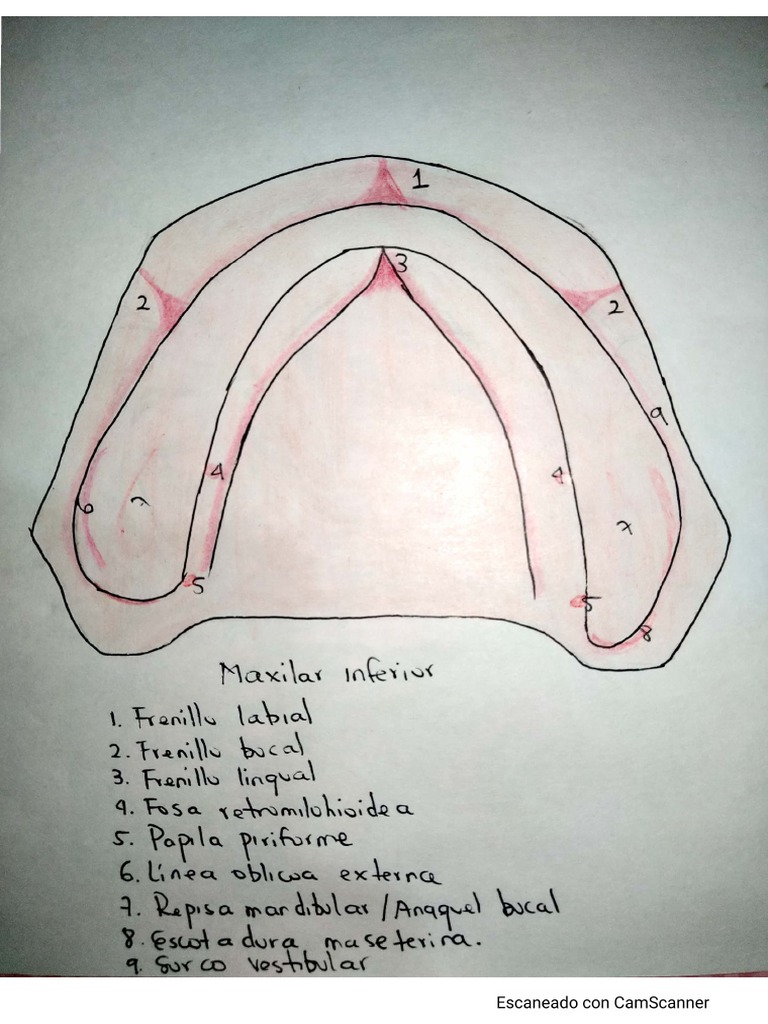 1
2
2
3
9
4
4
6
7
7
5
5
8
Maxilar inferior
1. Frenillo labial
2. Frenillo bucal
3. Frenillo lingual
4. Fosa retromilohioidea
5. Papila piriforme
6. Línea oblicua externa
7. Repisa mandibular / Anaquel bucal
8. Escotadura maseterina.
9. Surco vestibular
Escaneado con CamScanner